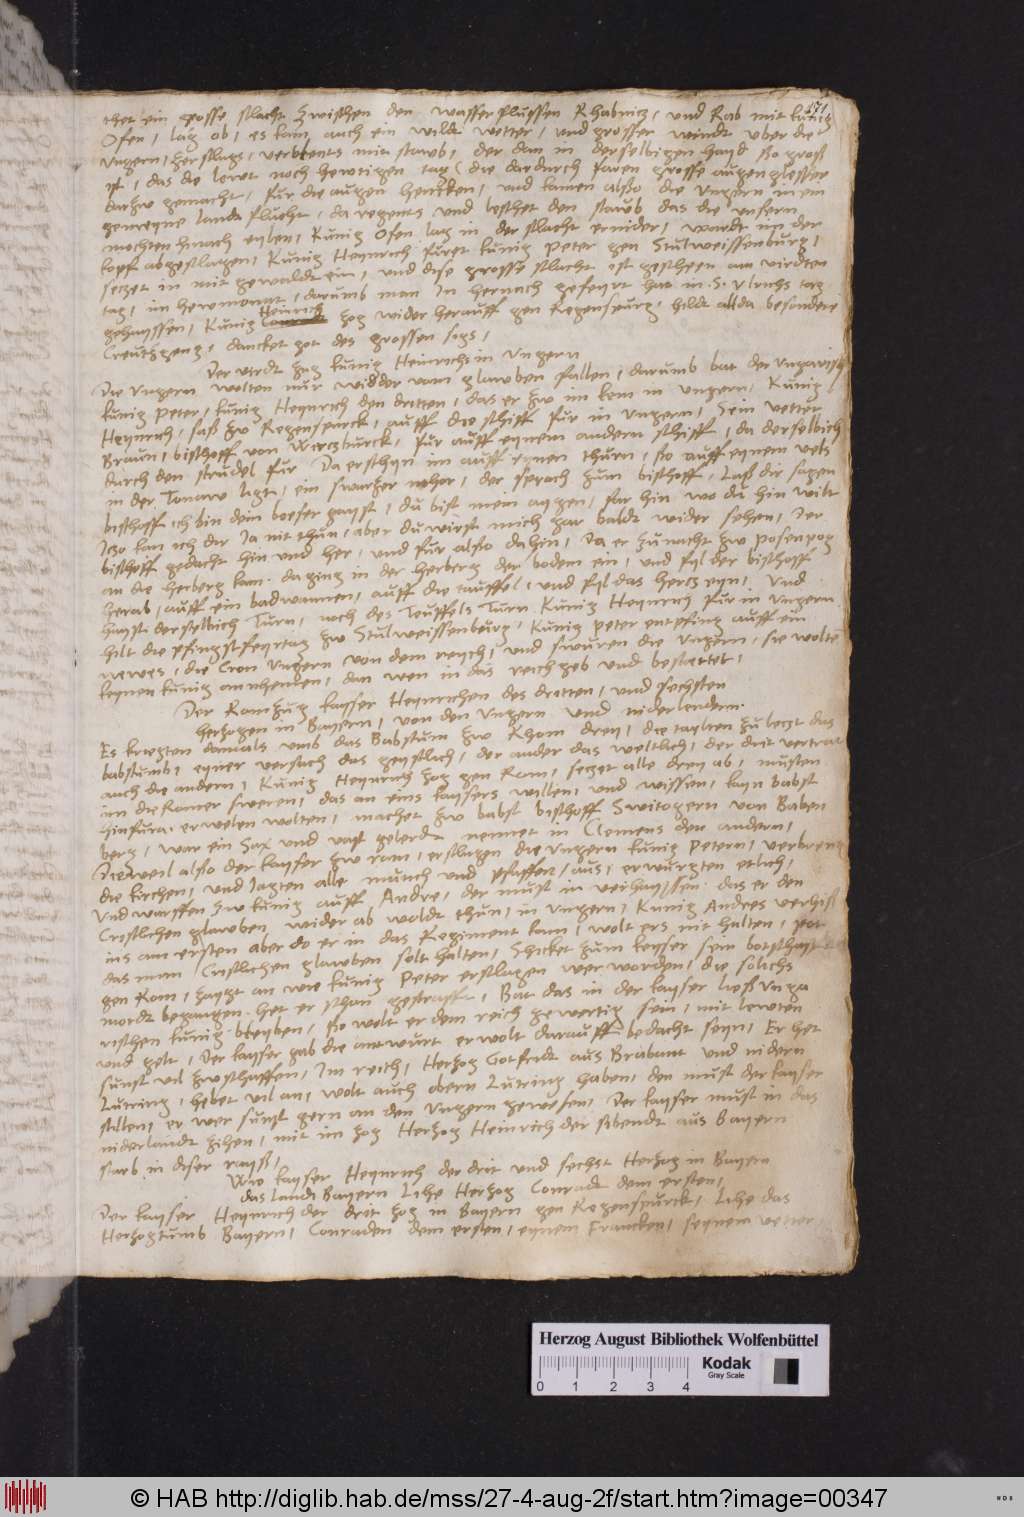 171
thet ein grosse slacht zwischen den wasserflussen Rhabnitz, und Rab mit kunig
Ofen, lag ob, es kam auch ein wildt wetter, und grosser windt uber die
Ungern, her flugs, verblents mit stawb, der dan in derselbigen hayd so groß
ist, das die lewt noch hewtigen tag (die dardurch faren grosse augenglesser
darzw gemacht, fur die augen hencken, und kamen also die Ungern in ein
gemeyne landt flucht, da regents und leschet den stawb das die unsern
mochten hinach eylen, kunig Ofen lag in der slacht ernider, wardt im der
kopf abgeslagen, kunig Heynrich furet kunig Peter gen Stulweissenburg,
seczet in mit gewaldt ein, und dise grosse slacht ist gescheen am vierdten
tag, im hewmonat, darumb man In hernach gefeyrt hat in S. Ulrichs tag
gehayssen, kunig Heinrich zog wider herauff gen Regenspurg, hildt allda besondere
Creutzgeng, dancket got des grossen sigs,
Der vierdt zug kunig Heinrichs in Ungern
Die Ungern wolten nur wider vom glawben fallen, darumb bat der Ungarisch
kunig Peter, kunig Heynrich den dritten, das er zw im kem in Ungern, kunig
Heynrich, saß zw Regenspurck, auff die schiff fur in Ungern, Sein vetter
Braun, bischoff von Wirczburck, fur auff eynem andern schiff, da derselbich
durch den strudel fur Da erschyn im auff eynen thurn, so auff eynem vels
in der Tonaw ligt, ein swarzer mohor, der sprach zum bischoff, Laß dir sagen
bischoff ich bin dein boeser gayst, du bist mein aygen, far hin wo du hin wilt
Iczo kan ich dir Ja nit thun, aber du wirst mich gar baldt wider sehen, Der
bischoff gedacht hin und her, und fur also dahin, Da er zu nacht zw posenpog
an die herberg kam. da ging in der herberg der bodem ein, und fyl der bischoff
herab, auff ein badwannen, auff die tauffel, und fyl das hercz eyn, Und
hayst derselbich Turn, noch des Teuffels Turn. Kunig Heynrich fur in Ungern
hilt die pfingstfeyrtag zw Stulweissenburg, kunig Peter entpfing auff ein
newes, die Cron Ungern von dem reych, und swuren die Ungern, sie wolten
keynen kunig annhemen, dan wen in das reich geb und bestettet,
Der Romzug kayser Heynrichen des dritten, und sechsten
herzogen in Bayern, von den Ungern und niderlendern.
Es kriegten damals umb das Babstum zw Rhom drey, die taylten zu leczt das
babstumb, eyner versach das geystlich, der ander das weltlich, der drit vertrat
auch die andern, kunig Heynrich zog gen Rom, seczet alle drey ab, musten
im die Romer sweren, das an eins kaysers willen, und wissen, kayn babst
hinfura, erwelen wolten, machet zw babst bischoff Switogern von Baben
berg, war ein Sax und vast gelerdt nennet in Clemens den andern,
Dieweil also der kayser zw rom, erslugen die Ungern kunig Petern, verbrentn
die kirchen, und Jagten alle munch und pfaffen, aus, erwurgten etlich,
Und warffen zw kunig auff Andre, der must in verhayssen. das er den
Cristlichen glawben wider ab woldt thun, in Ungern, Kunig Andres verhiß
ins am ersten aber do er in das Regiment kam, wolt ers nit halten, pot
das man Cristlichen glawben solt halten, Schicket zum keyser sein botschaft
gen Rom, zaygt an wie kunig Peter erslagen wer worden, die solichs
mordt begangen. het er schon gestrafft, Bat das in der kayser ließ Unga
rischen kunig bleyben, so wolt er dem reich gewertig sein, mit lewten
und gelt, Der kayser gab die antwurt er wolt darauff bedacht seyn, Er het
sunst vil zwschaffen, Im reich, Herzog Gotfridt aus Brabant und nidern
Lutring, hebet vil an, wolt auch obern Lutring haben, den must der kayser
stillen, er wer sunst gern an den Ungern gewesen, Der kayser must in das
niderlandt zihen, mit im zog Herzog Heinrich der sibendt aus Bayern
starb in diser rayß,
Wie kayser Heynrich der drit und sechst Herzog in Bayern
das landt Bayern Lihe Herzog Conradt dem ersten,
Der kayser Heynrich der drit zog in Bayern gen Regenspurck, Lihe das
Herzogtumb Bayern, Conraden dem ersten, eynem Francken, seynem vetter,
Herzog August Bibliothek Wolfenbüttel
Kodak
Gray Scale
0 1 2 3 4
© HAB http://diglib.hab.de/mss/27-4-aug-2f/start.htm?image=00347